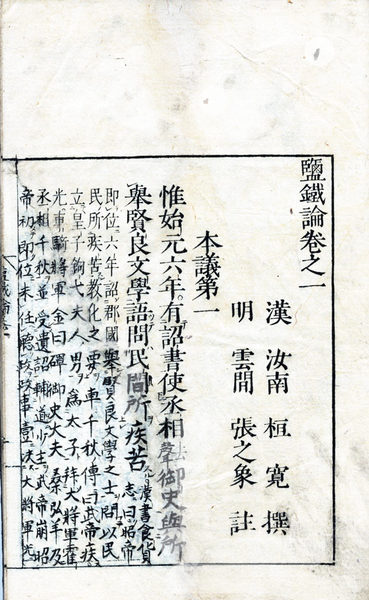 鹽鐵論卷之一
漢 汝南 桓寬 撰
明 雲間 張之象 註
本議第一
惟始元六年有詔書使丞相御史與所
舉賢良文學語問民間所疾苦
漢書食貨
志曰昭帝
即位六年詔郡國舉賢良文學之士問以民
所疾苦教化之要車千秋傳曰武帝疾
立皇子鉤弋夫人男為太子拜大將軍霍
光車騎將軍金日磾御史大夫桑弘羊及
丞相千秋並受遺詔輔道少主武帝崩昭
帝初即位未任聽政政事壹決大將軍光